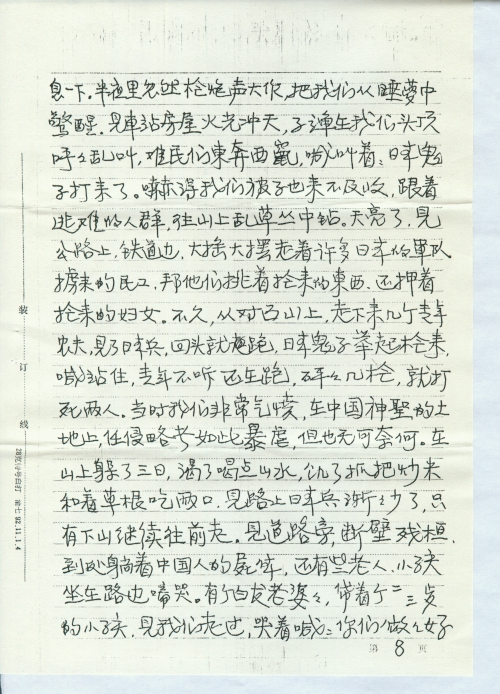 息一下。半夜里忽然枪炮声大作，把我们从睡梦中
惊醒。见車站房屋火光冲天，子弹在我们头顶
呼々乱叫，难民们東奔西窜，喊叫着：日本鬼
子打来了。嚇得我们被子也来不及收，跟着
逃难的人群，往山上乱草丛中钻。天亮了，见
公路上，铁道边，大摇大摆走着许多日本的軍队
掳来的民工，邦他们挑着抢来的東西、还押着
抢来的妇女。不久，从对凸山上，走下来几个青年
农夫，见了日本兵，回头就跑，日本鬼子举起枪来，
喊站住，青年不听还在跑，砰々几枪，就打
死两人。当时我们非常气愤，在中国神聖的土
地上，任侵略者如此暴虐，但也无可奈何。在
山上躲了三日，渴了喝点山水，饥了抓把炒米
和着草根吃两口。见路上日本兵渐々少了，只
有下山继续往前走。见道路旁，断壁残桓，
到处躺着中国人的屍体，还有些老人、小孩
坐在路边啼哭。有个白发老婆々，带着个二三岁
的小孩，见我们走过，哭着喊：你们做々好
第 8 页
装
订
线